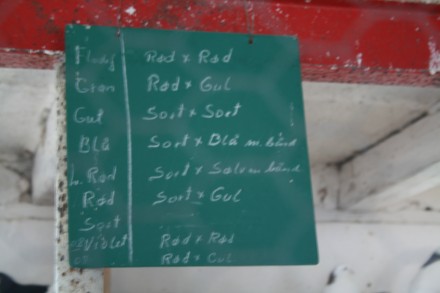 Rød × Rød
Grøn Rød × Gul
Gul Sort × Sort
Blå Sort × Blå m. bånd
L. Rød Sort × Sølv m bånd
Rød Sort × Gul
Sort
Violet Rød × Rød
Rød × Gul